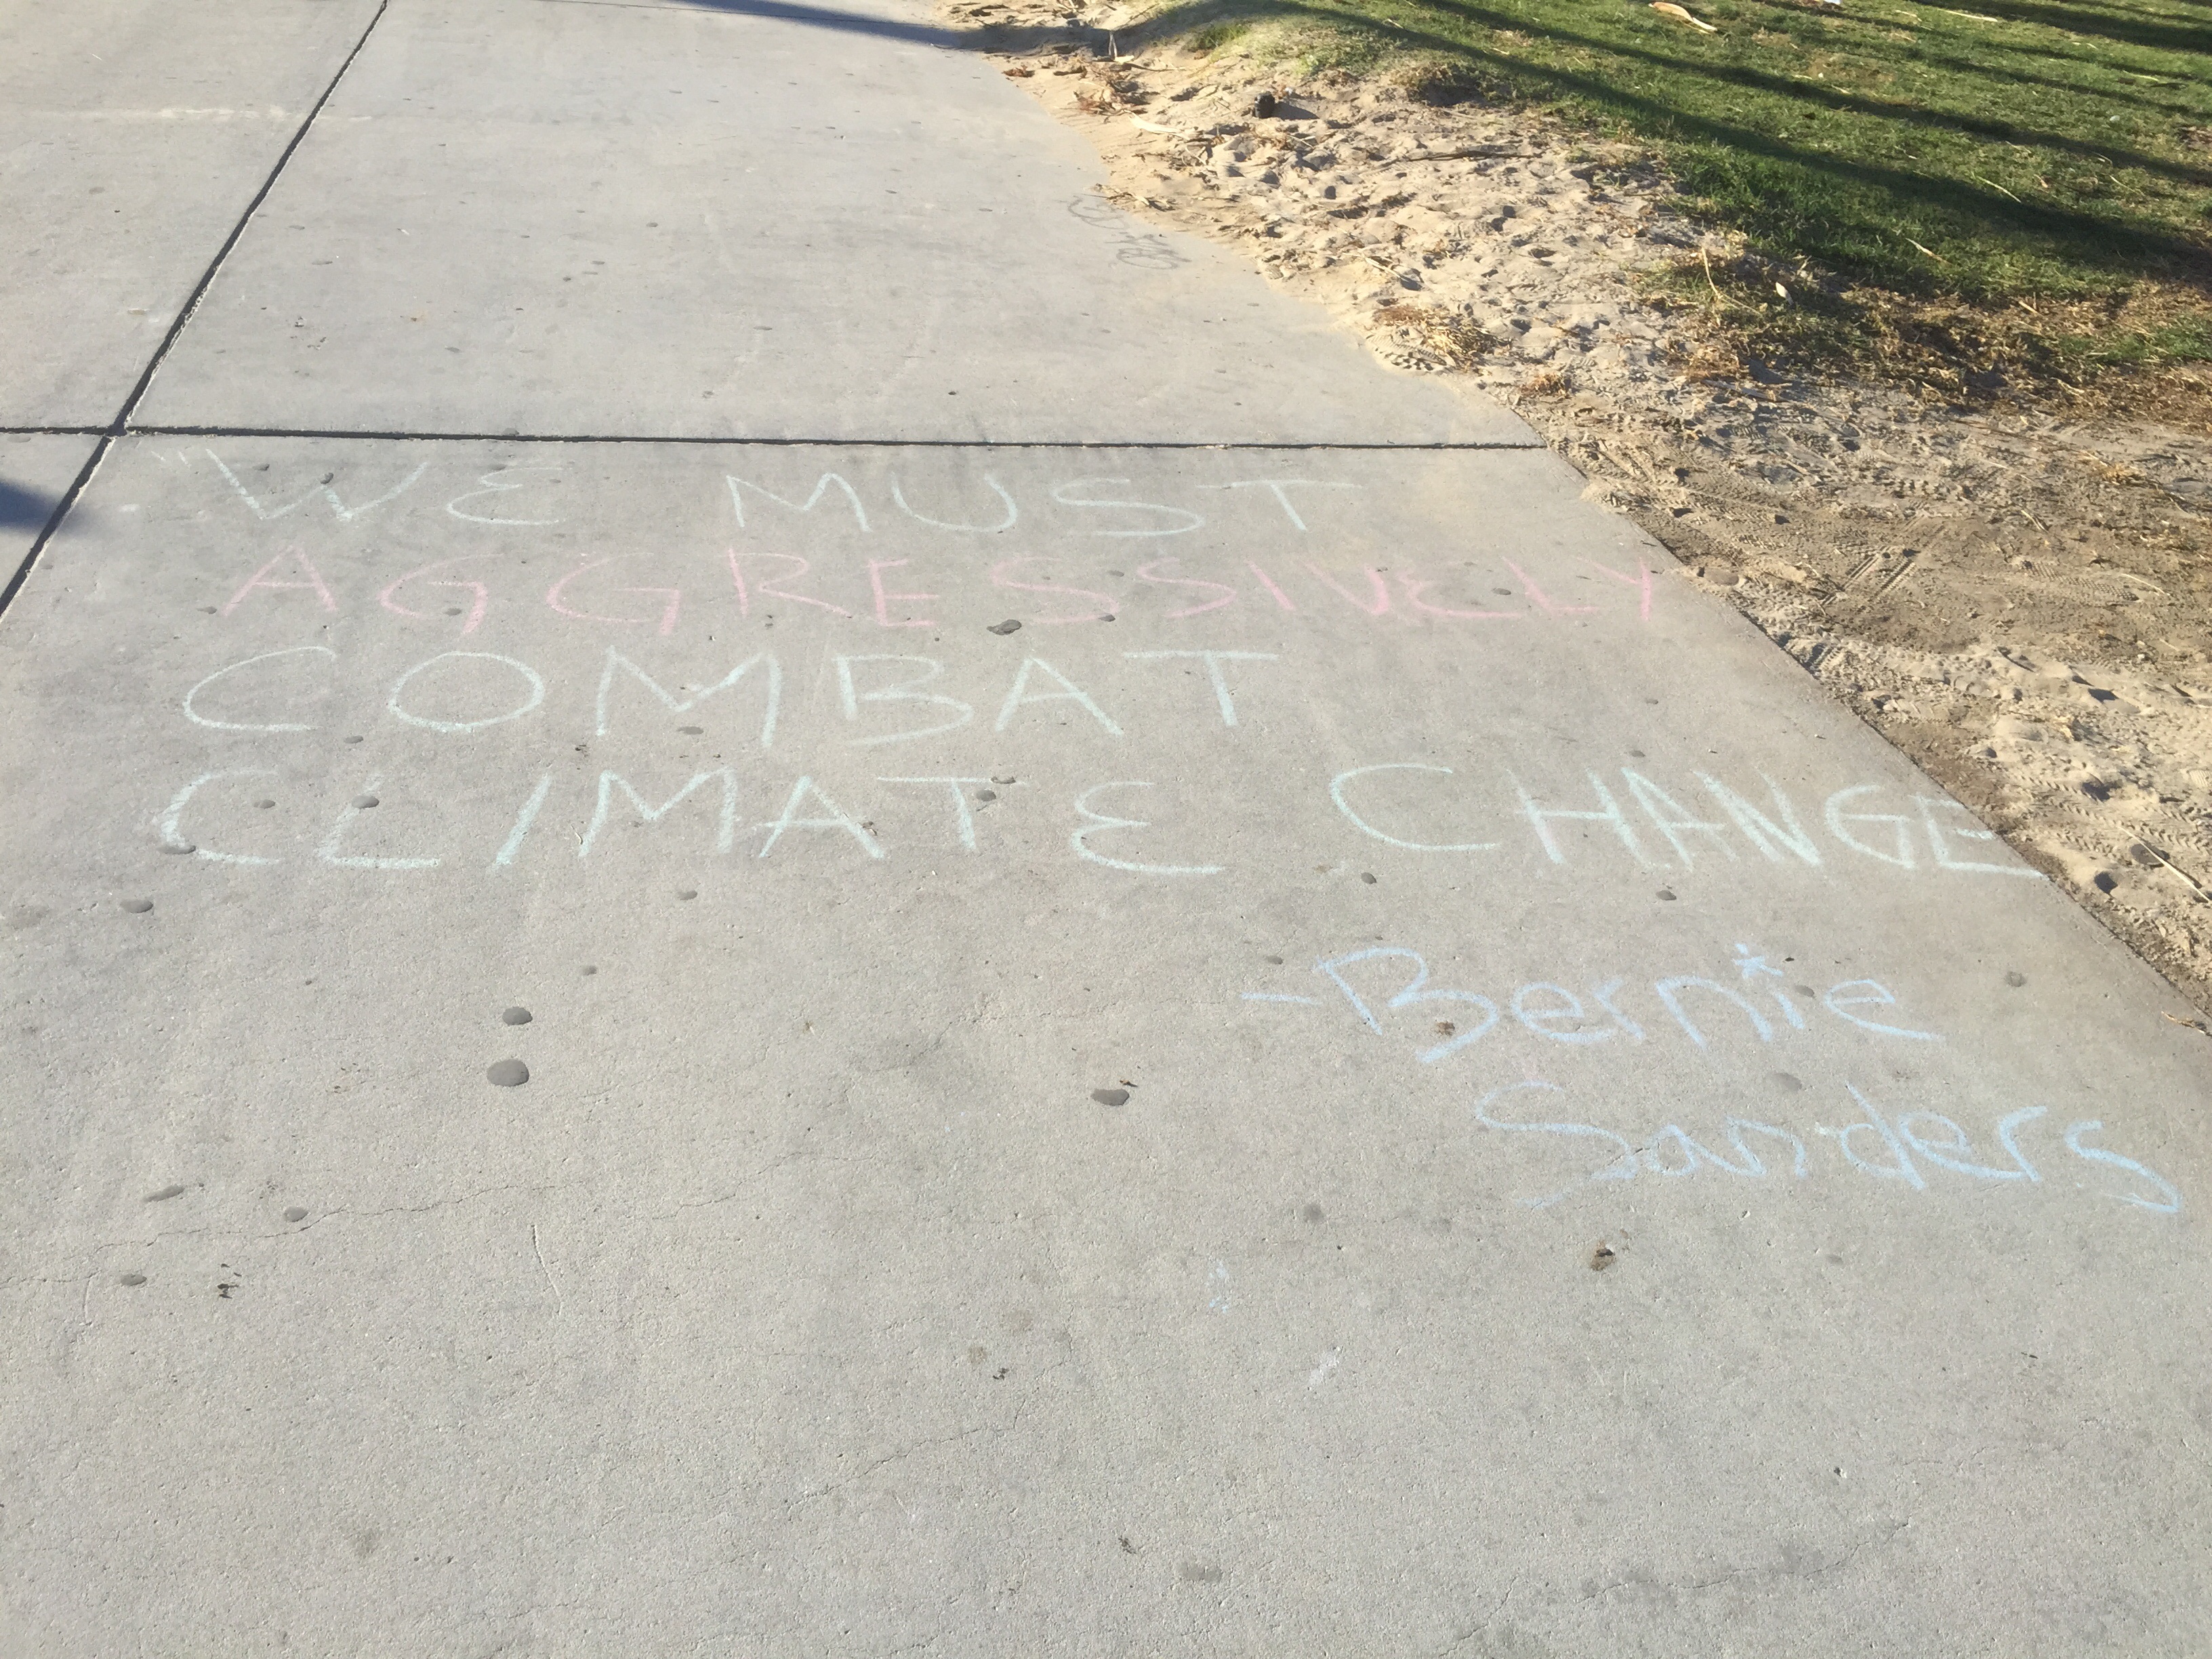 "WE MUST
AGGRESSIVELY
COMBAT
CLIMATE CHANGE
-Bernie
Sanders